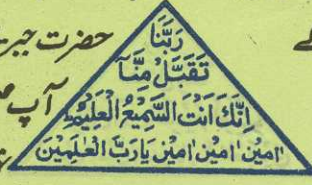 رَبَّنَا
تَقَبَّلْ مِنَّا
اِنَّكَ اَنْتَ السَّمِیْعُ الْعَلِیْمُ
اٰمِیْن اٰمِیْن اٰمِیْن یَا رَبَّ الْعٰلَمِیْنَ
حضرت
آپ